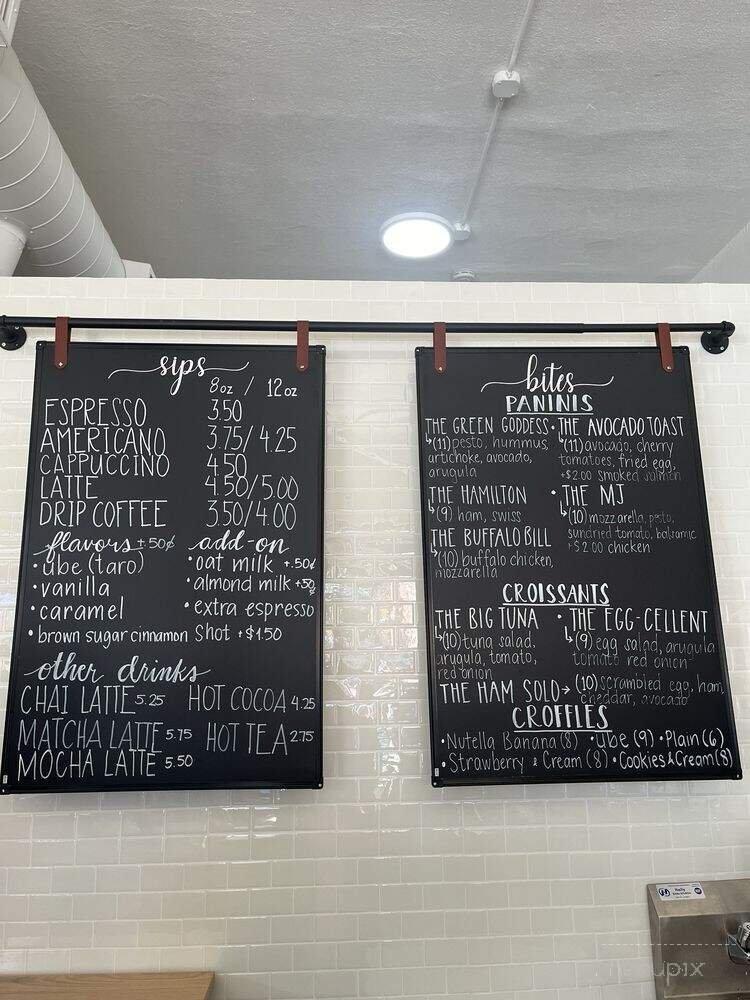 sips
8oz / 12oz
ESPRESSO 3.50
AMERICANO 3.75/4.25
CAPPUCCINO 4.50
LATTE 4.50/5.00
DRIP COFFEE 3.50/4.00
flavors +.50¢
• ube (taro)
• vanilla
• caramel
• brown sugar cinnamon
add-on
• oat milk +.50¢
• almond milk +.50¢
• extra espresso
shot +$1.50
other drinks
CHAI LATTE 5.25 HOT COCOA 4.25
MATCHA LATTE 5.75 HOT TEA 2.75
MOCHA LATTE 5.50
bites
PANINIS
THE GREEN GODDESS
↳(11) pesto, hummus,
artichoke, avocado,
arugula
THE HAMILTON
↳(9) ham, swiss
THE BUFFALO BILL
↳(10) buffalo chicken,
mozzarella
• THE AVOCADO TOAST
↳(11) avocado, cherry
tomatoes, fried egg,
+$2.00 smoked salmon
• THE MJ
↳(10) mozzarella, pesto,
sundried tomato, balsamic
+$2.00 chicken
CROISSANTS
THE BIG TUNA
↳(10) tuna salad,
arugula, tomato,
red onion
• THE EGG-CELLENT
↳(9) egg salad, arugula
tomato red onion
THE HAM SOLO → (10) scrambled egg, ham,
cheddar, avocado
CROFFLES
• Nutella Banana (8) • Ube (9) • Plain (6)
• Strawberry & Cream (8) • Cookies & Cream (8)